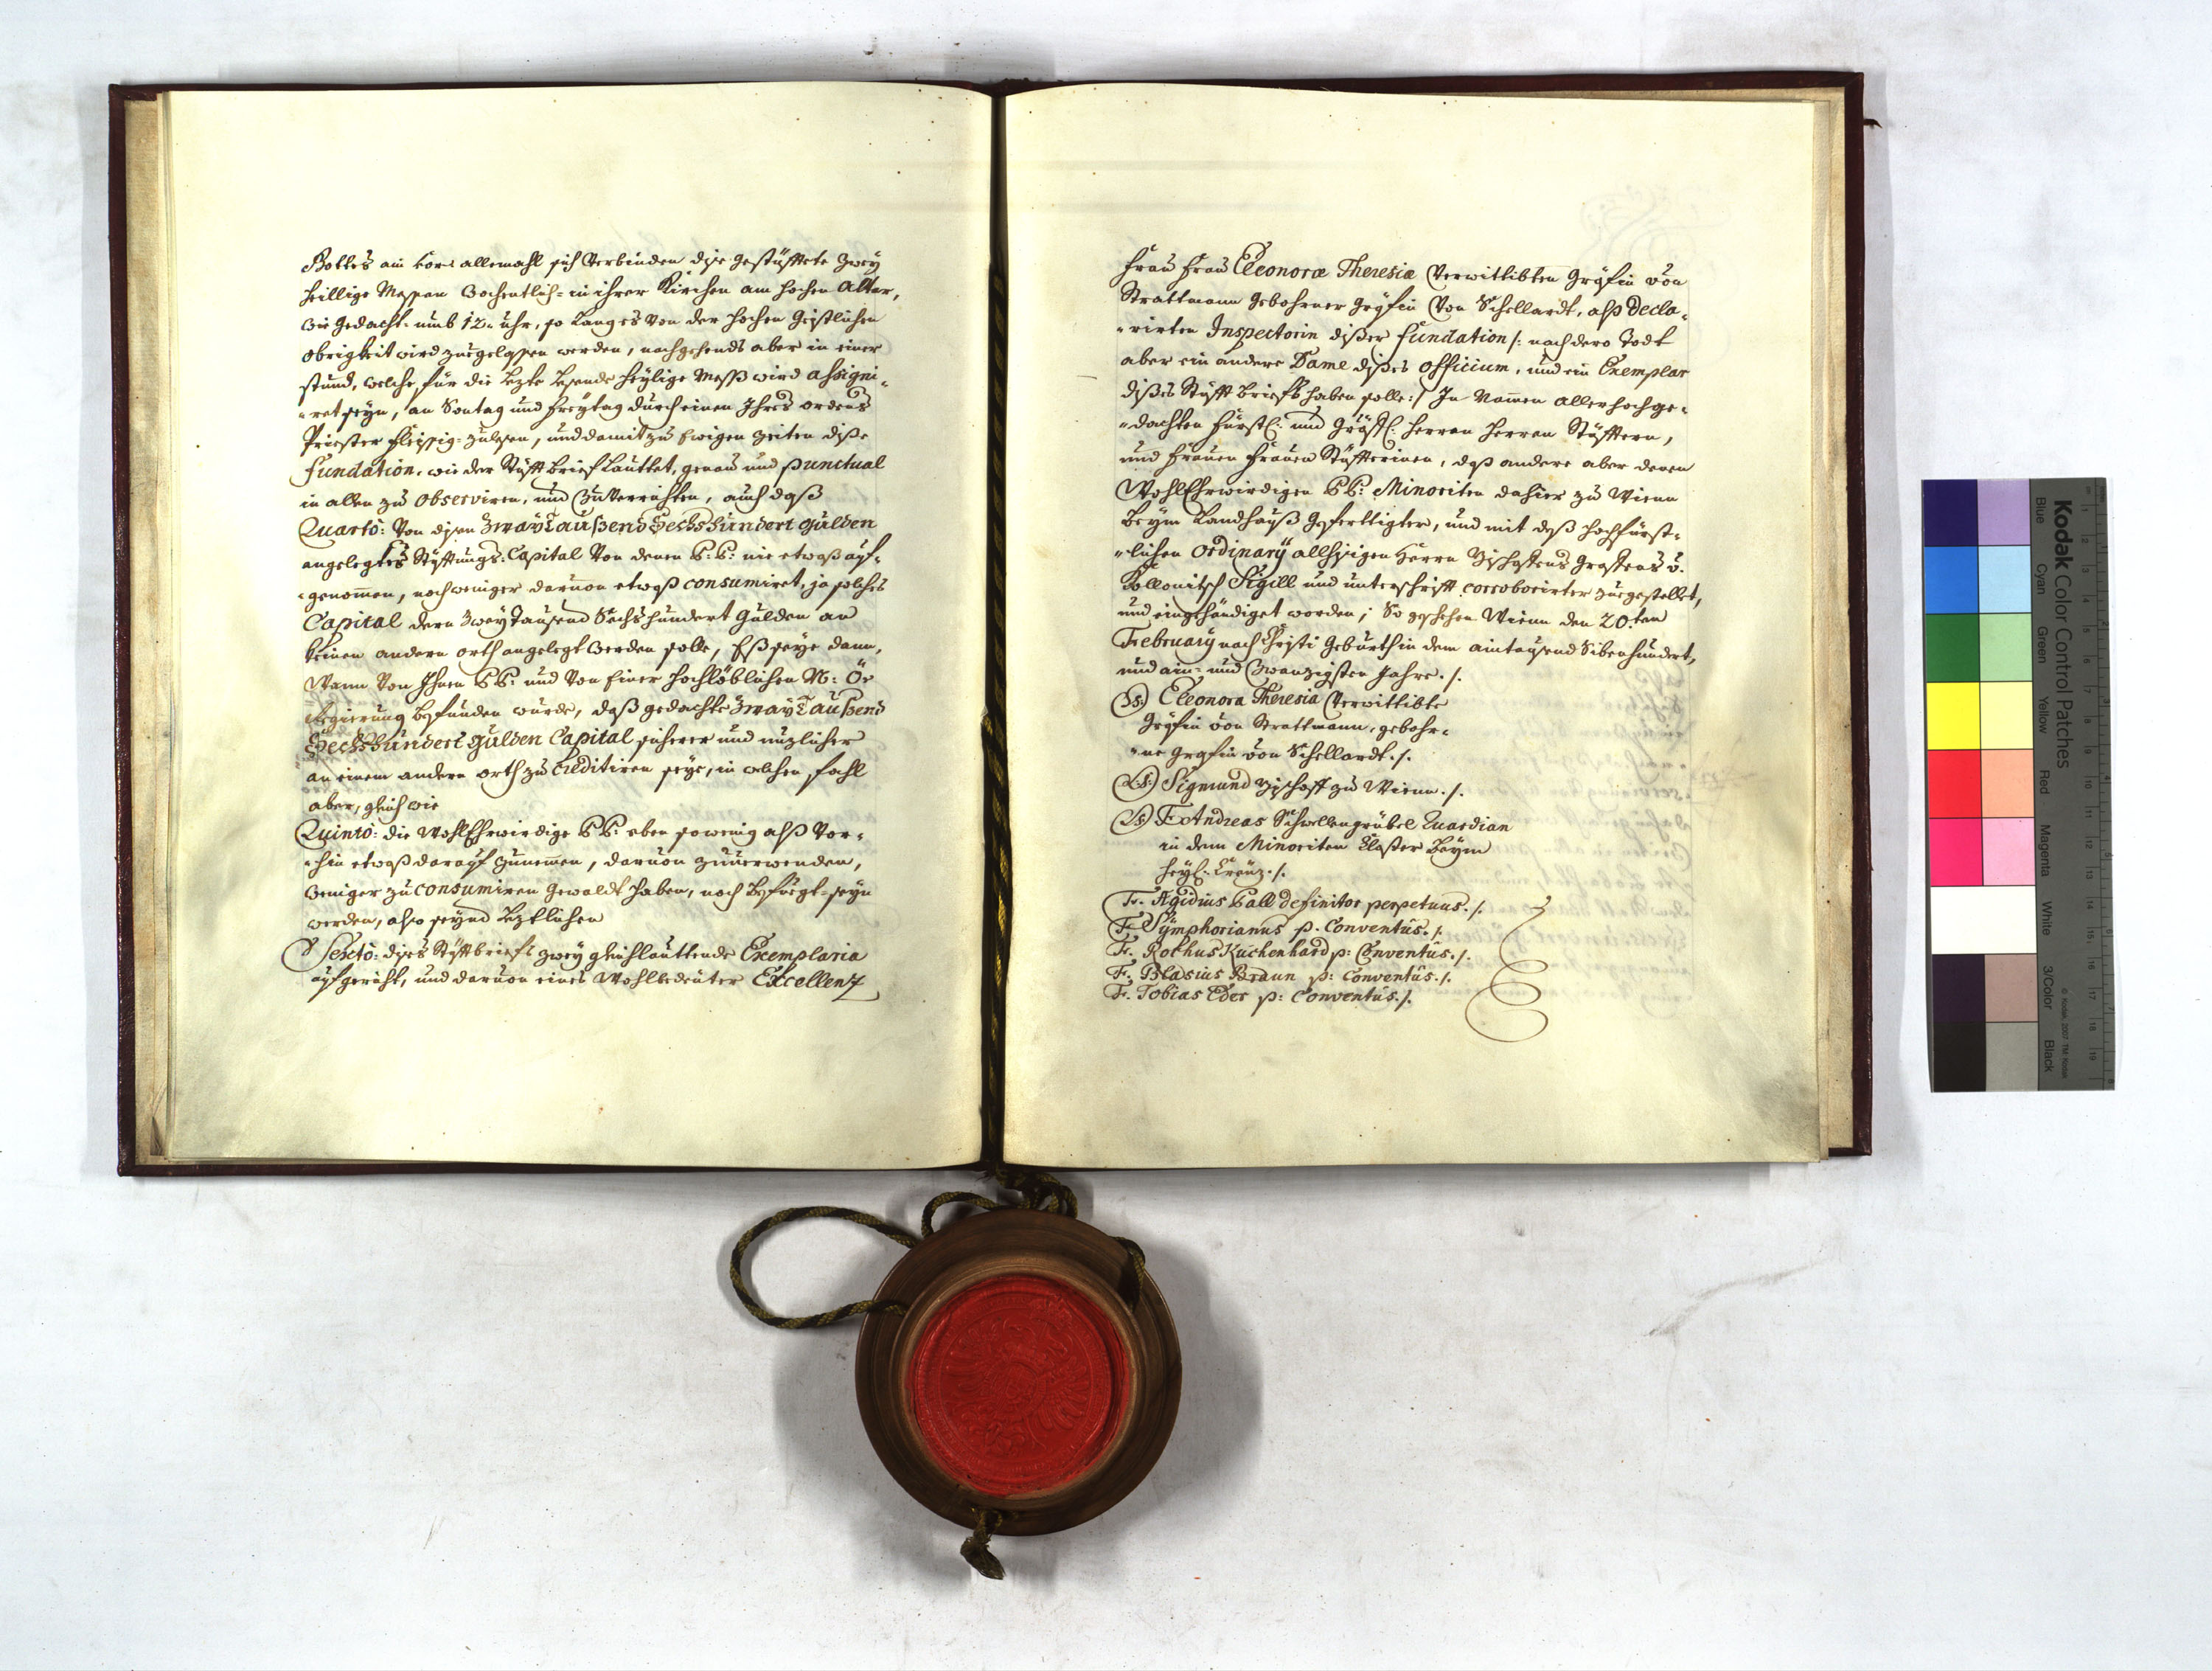 Gottes am Cors allemahl sich Verbinden dise gestüfftete zwey
heillige Messen wochentlich- in ihrer Kirchen am hochen Altar,
wie gedacht umb 12. uhr, so lang es von der hochen Geistlichen
obrigkeit wird zuegelassen werden, nachgehends aber in einer
stund, welche für die lezte lesende heylige Mess wird assigni-
-ret seyn, an Sontag und Freytag durch einen Ihres ordens
Priester fleissig- zulesen, und damit zu Ewigen Zeiten dise
Fundation, wie der Stüfft brief lauttet, genau und punctual
in allen zu observiren, und zuverrichten, auch daß
Quartò: Von disen Zway Tausend Sechshundert gulden
angelegtes Stüfftungs-Capital Von denen P:P: nie etwaß auf-
-genommen, noch weniger daruon etwaß consumiret, ja solches
Capital deren Zwey Tausend Sechshundert Gulden an
keinen andern orth angelegt werden solle, Eß seye dann,
Wann Von Ihnen PP: und Von Einer hochlöblichen N: Ö:
Regierung befunden wurde, daß gedachte Zway Tausend
Sechshundert gulden Capital sicherer und nuzlicher
an einem andern orth zu creditiren seye, in welchen fahl
aber, gleich wie
Quintò: die WohlEhrwirdige PP: eben sowenig alß Vor-
-hin etwaß darauf zunemmen, daruon zuuerwenden,
weniger zu consumiren gewaldt haben, noch befuegt- seyn
werden, also seynd leztlichen
Sextò: dises Stüfftbriefs zwey gleichlauttende Exemplaria
aufgericht, und daruon eines Wohlbedeuter Excellenz
Frau Frau Eleonoræ Theresiæ Verwittibten Gräfin von
Strattmann gebohrner Gräfin Von Schellardt, alß decla-
-rirten Inspectorin diser Fundation /: nach dero Todt
aber ein andere Dame dises officium, und ein Exemplar
dises Stüfft briefs haben solle :/ In Nammen allerhochge-
-dachten Fürstl: und Gräffl: Herren Herren Stüfftern,
und Frauen Frauen Stüffterinen, daß andere aber denen
WohlEhrwirdigen PP: Minoriten dahier zu Wienn
beym Landhauß gefertigter, und mit deß hochfürst-
-lichen Ordinarÿ allhisigen Herrn Bischoffens Graffens v.
Kollonitsch Sigill und unterschrifft corroborirter zuegestellet,
und eingehändiget worden; So geschehen Wienn den 20.ten
February nach Christi geburth in dem aintausend Sibenhundert,
und ain- und zwanzigsten Jahre ./.
(LS) Eleonora Theresia Verwittibte
Gräfin von Strattmann, gebohr-
-ne Gräfin von Schellardt ./.
(LS) Sigmund Bischoff zu Wienn ./.
(LS) Fr: Andreas Schwellengräbel Quardian
in dem Minoriten Closter beym
heyl: Creuz ./.
Fr. Ægidius Ball definitor perpetuus ./.
F. Symphorianus p. Conventûs ./.
F. Rochus Kuchenhard p: Conventûs ./.
F. Blasius Braun p: Conventûs ./.
F. Tobias Eder p: Conventûs ./.
Kodak Color Control Patches
Blue Cyan Green Yellow Red Magenta White 3/Color Black
© Kodak, 2007 TM: Kodak